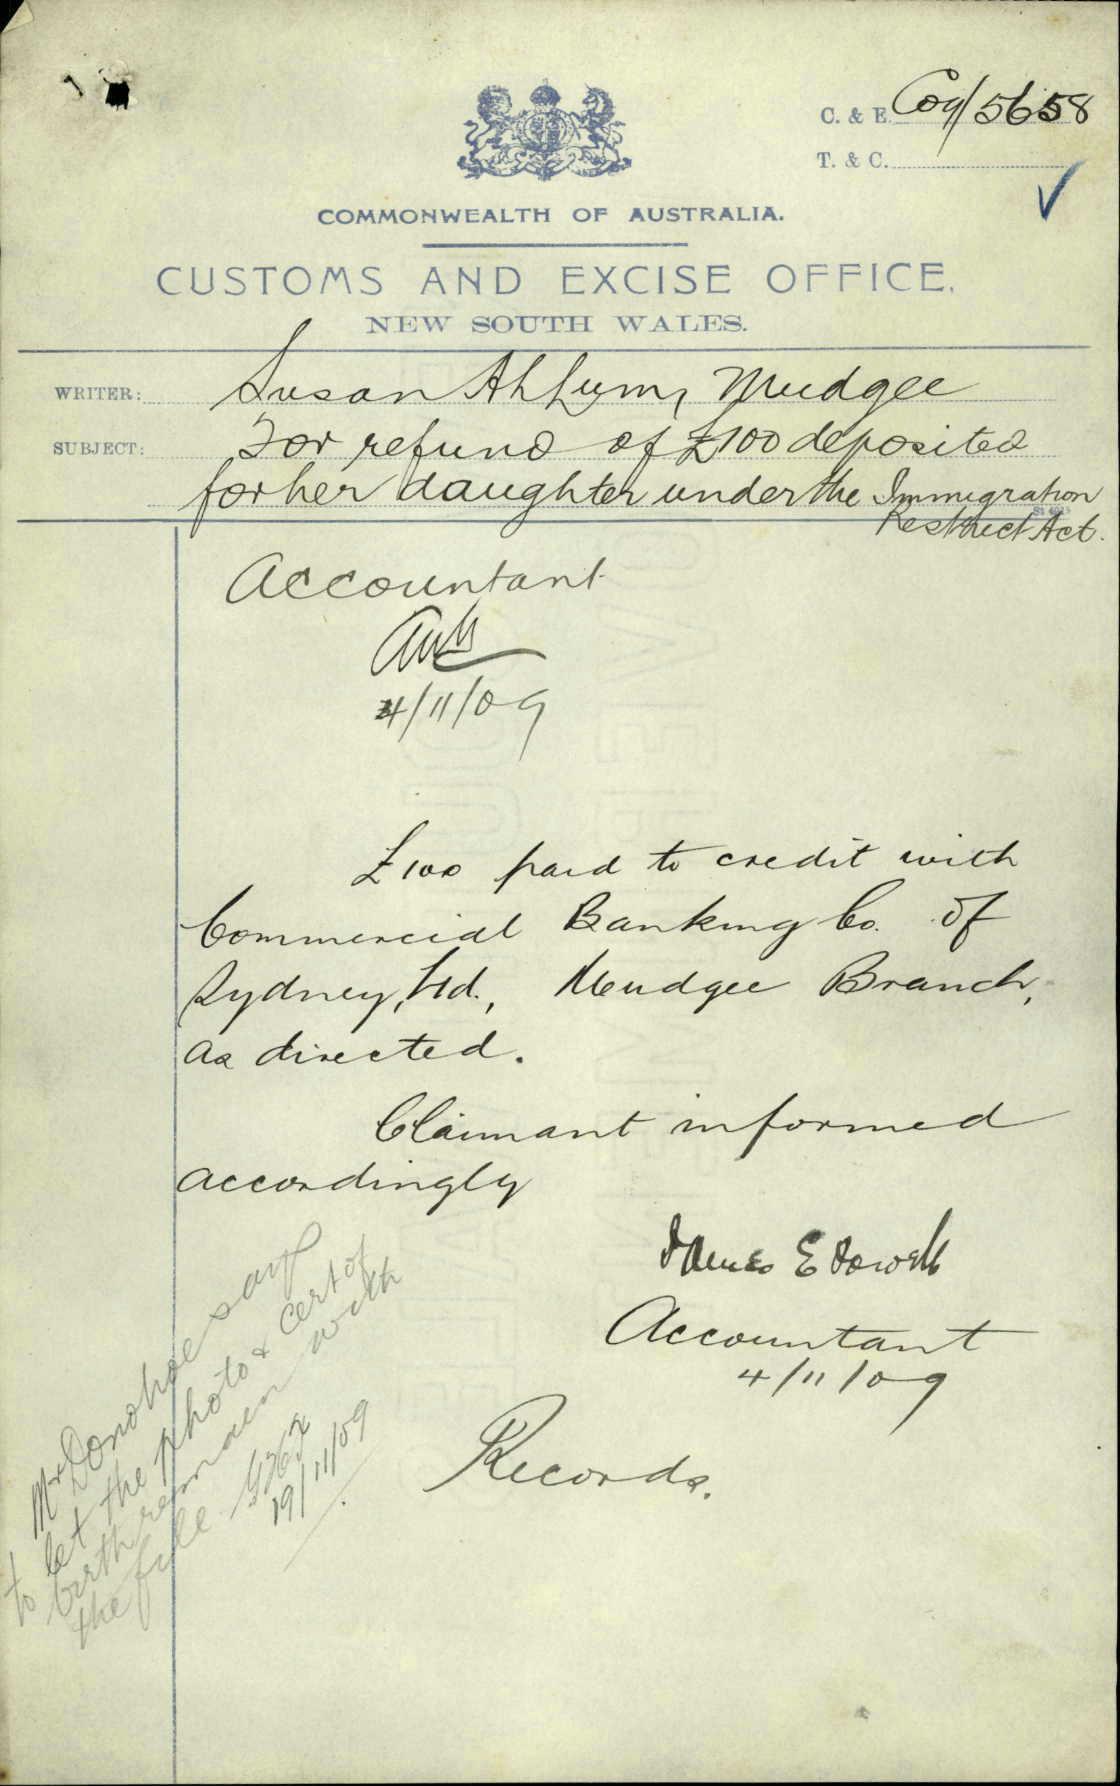 C. & E. C09/5658
T. & C.
COMMONWEALTH OF AUSTRALIA.
CUSTOMS AND EXCISE OFFICE,
NEW SOUTH WALES.
WRITER: Susan Ah Lum, Mudgee
SUBJECT: For refund of £100 deposited
for her daughter under the Immigration
Restrict Act.
Accountant
4/11/09
£100 paid to credit with
Commercial Banking Co. of
Sydney, Ltd., Mudgee Branch,
as directed.
Claimant informed
accordingly
James E Dowell
Accountant
4/11/09
Records.
Mr Donohoe says
to let the photo & cert of
birth remain with
the file
19/11/09